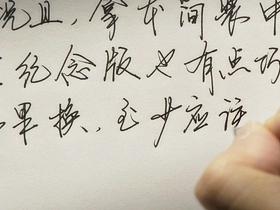 况且,拿本间装中
纪念版也有点巧
果换、至少应该